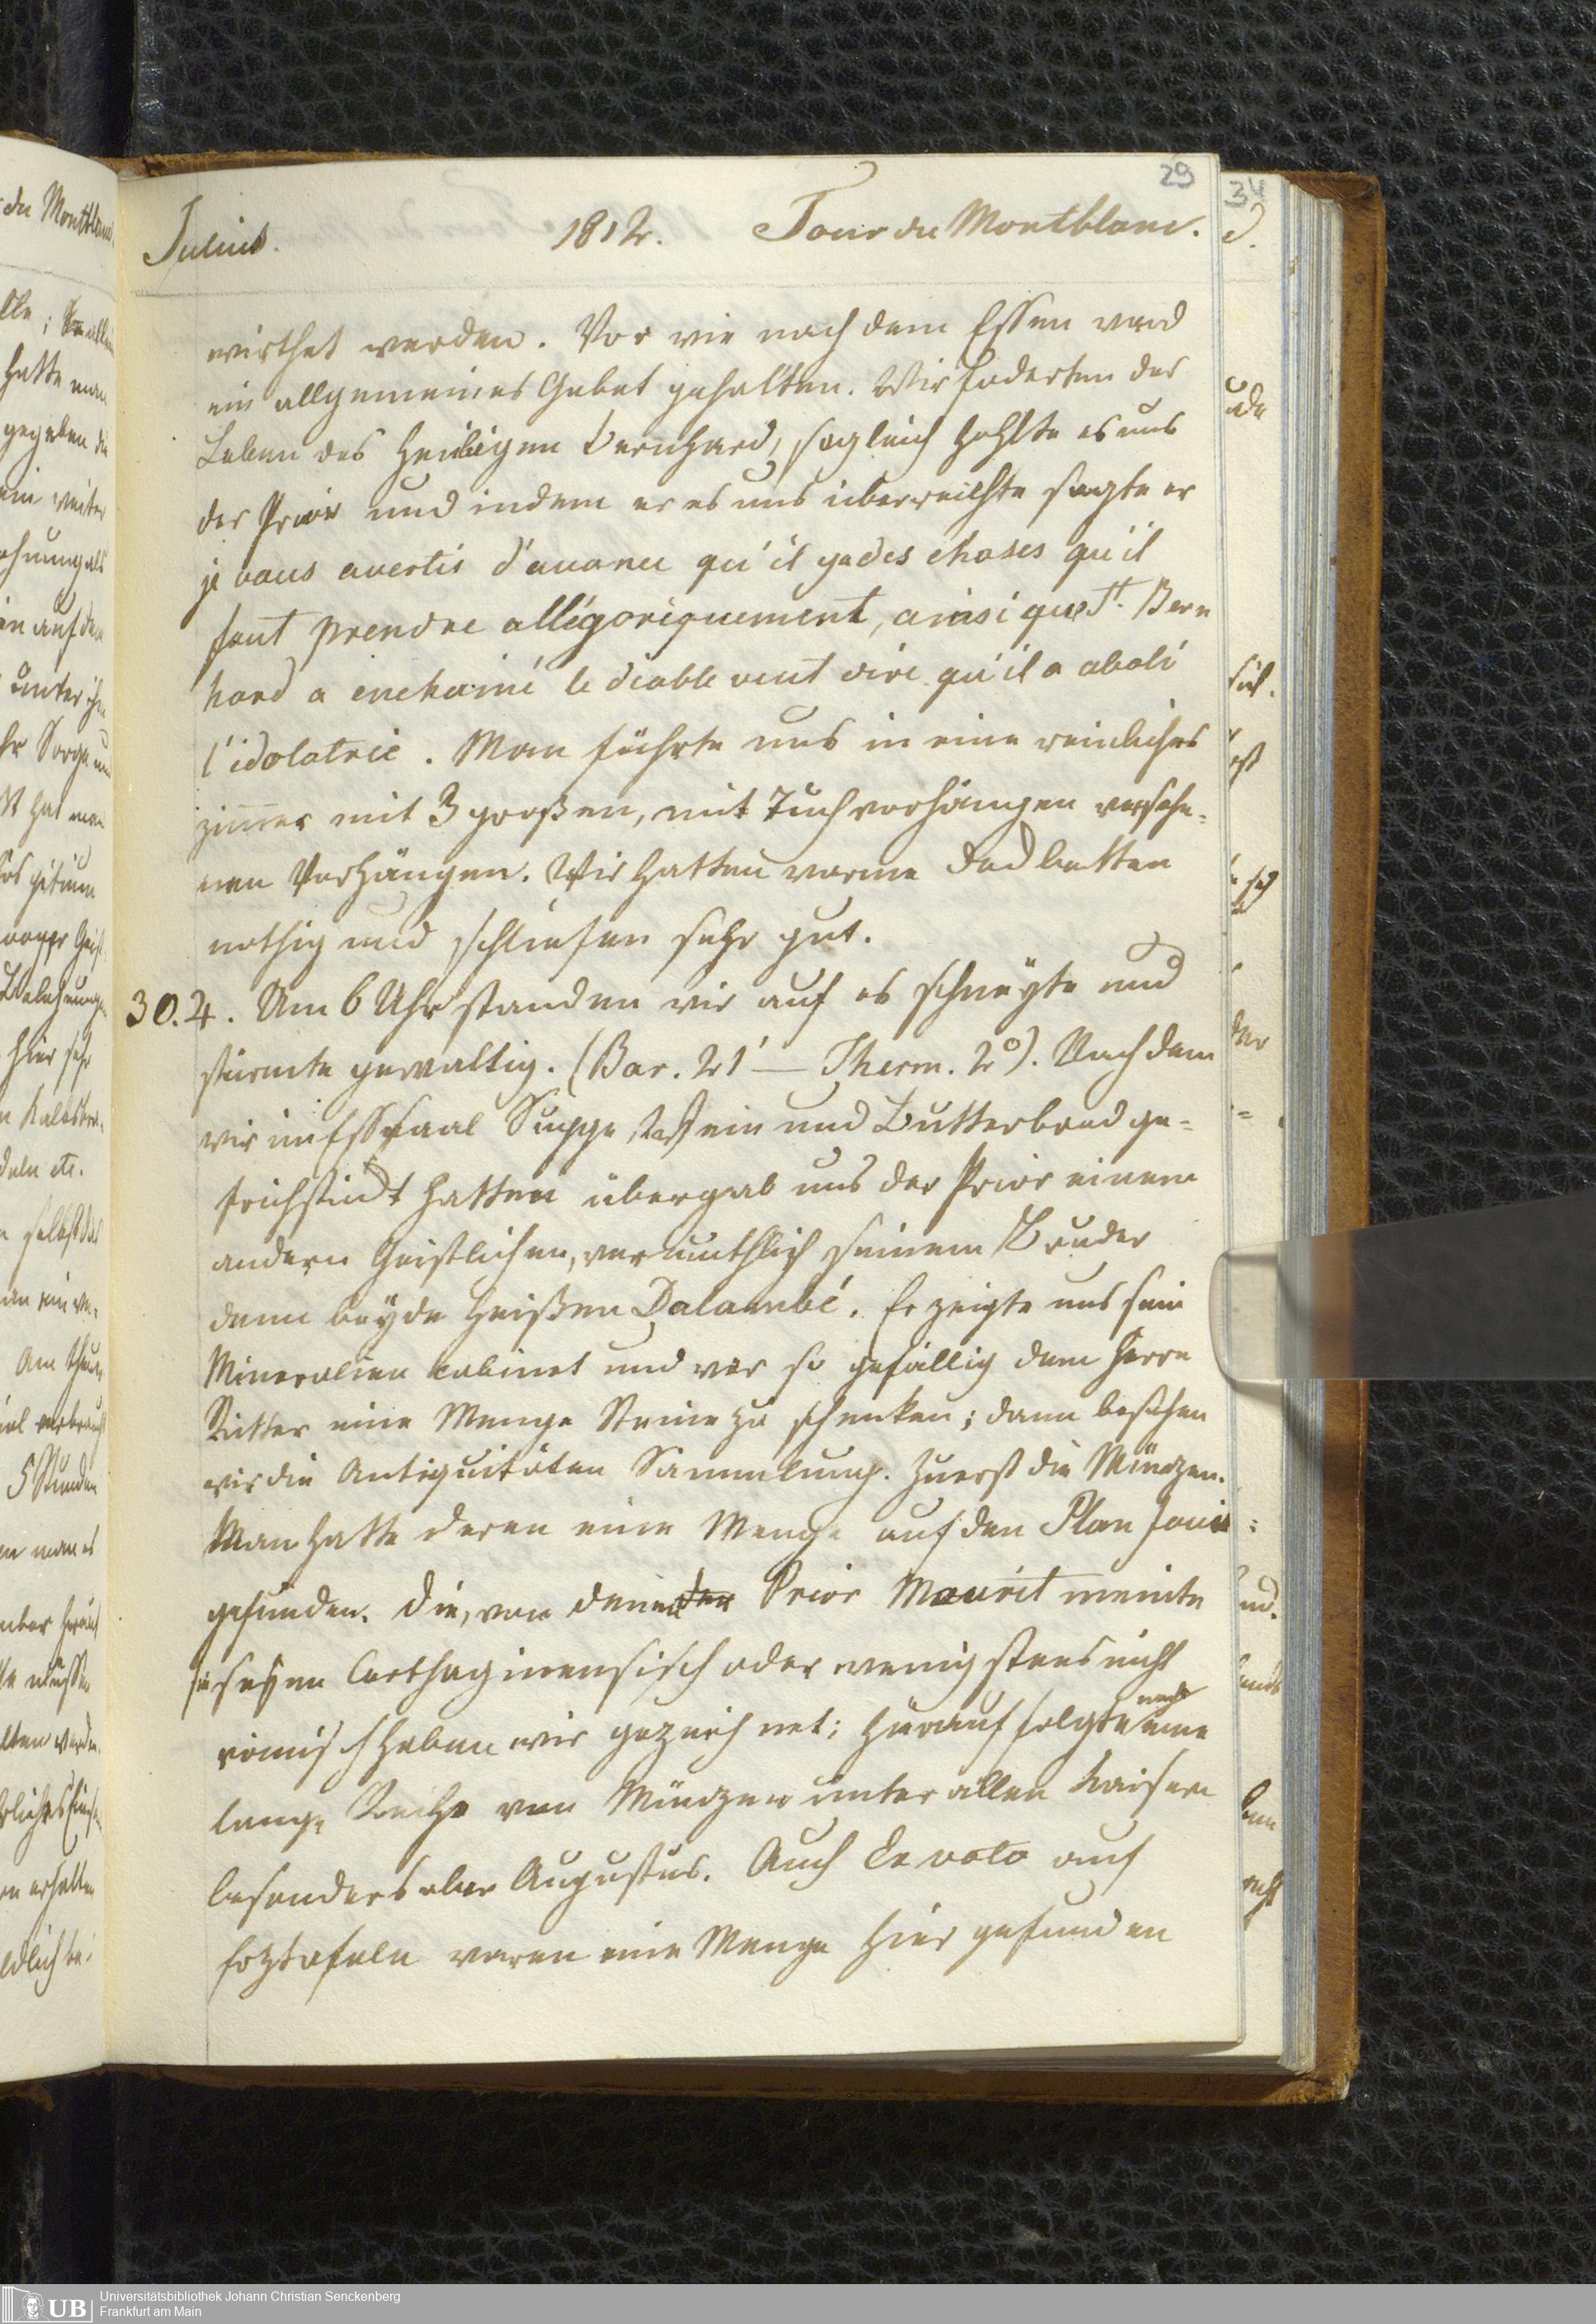 29
Julius. 1812. Tour du Montblanc.
wirthet werden. Vor wie nach dem Essen ward
ein allgemeines Gebet gehalten. Wir foderten das
Leben des Heiligen Bernhard, sogleich hohlte es uns
der Prior und indem er es uns überreichte sagte er
je vous avertis d'avance qu'il ya des choses qu'il
faut prendre allégoriquement, ainsi que St. Bern
hard a enchainé le diable veut dire qu'il a aboli
l'idolatrie. Man führte uns in eine reinliches
zimmer mit 3 großen, mit Tuchvorhängen versehe=
nen Vorhängen. Wir hatten warme Bedbetten
nothig und schliefen sehr gut.
30. ♃. Um 6 Uhr standen wir auf es schneyte und
stürmte gewaltig. (Bar. 21' — Therm. 2°). Nachdem
wir im Esssaal Suppe, Wein und Butterbrod ge=
frühstückt hatten übergab uns der Prior einem
andern Geistlichen, vermuthlich seinem Bruder
denn beyde heißen Dalambé. Er zeigte uns sein
Mineralien cabinet und war so gefällig dem Herrn
Ritter eine Menge Steine zu schenken; dann besahen
wir die Antiquitäten Sammlung. Zuerst die Münzen.
Man hatte deren eine Menge auf den Plan Jovis
gefunden. Die, von denen der Prior Maurit meinte
sie seyen Carthaginensisch oder wenigstens nicht
römisch haben wir gezeichnet; hierauf folgte noch eine
lange Reihe von Münzen unter allen Kaisern
besonders aber Augustus. Auch Ex voto auf
Erztafeln waren eine Menge hier gefunden
34
UB
Universitätsbibliothek Johann Christian Senckenberg
Frankfurt am Main